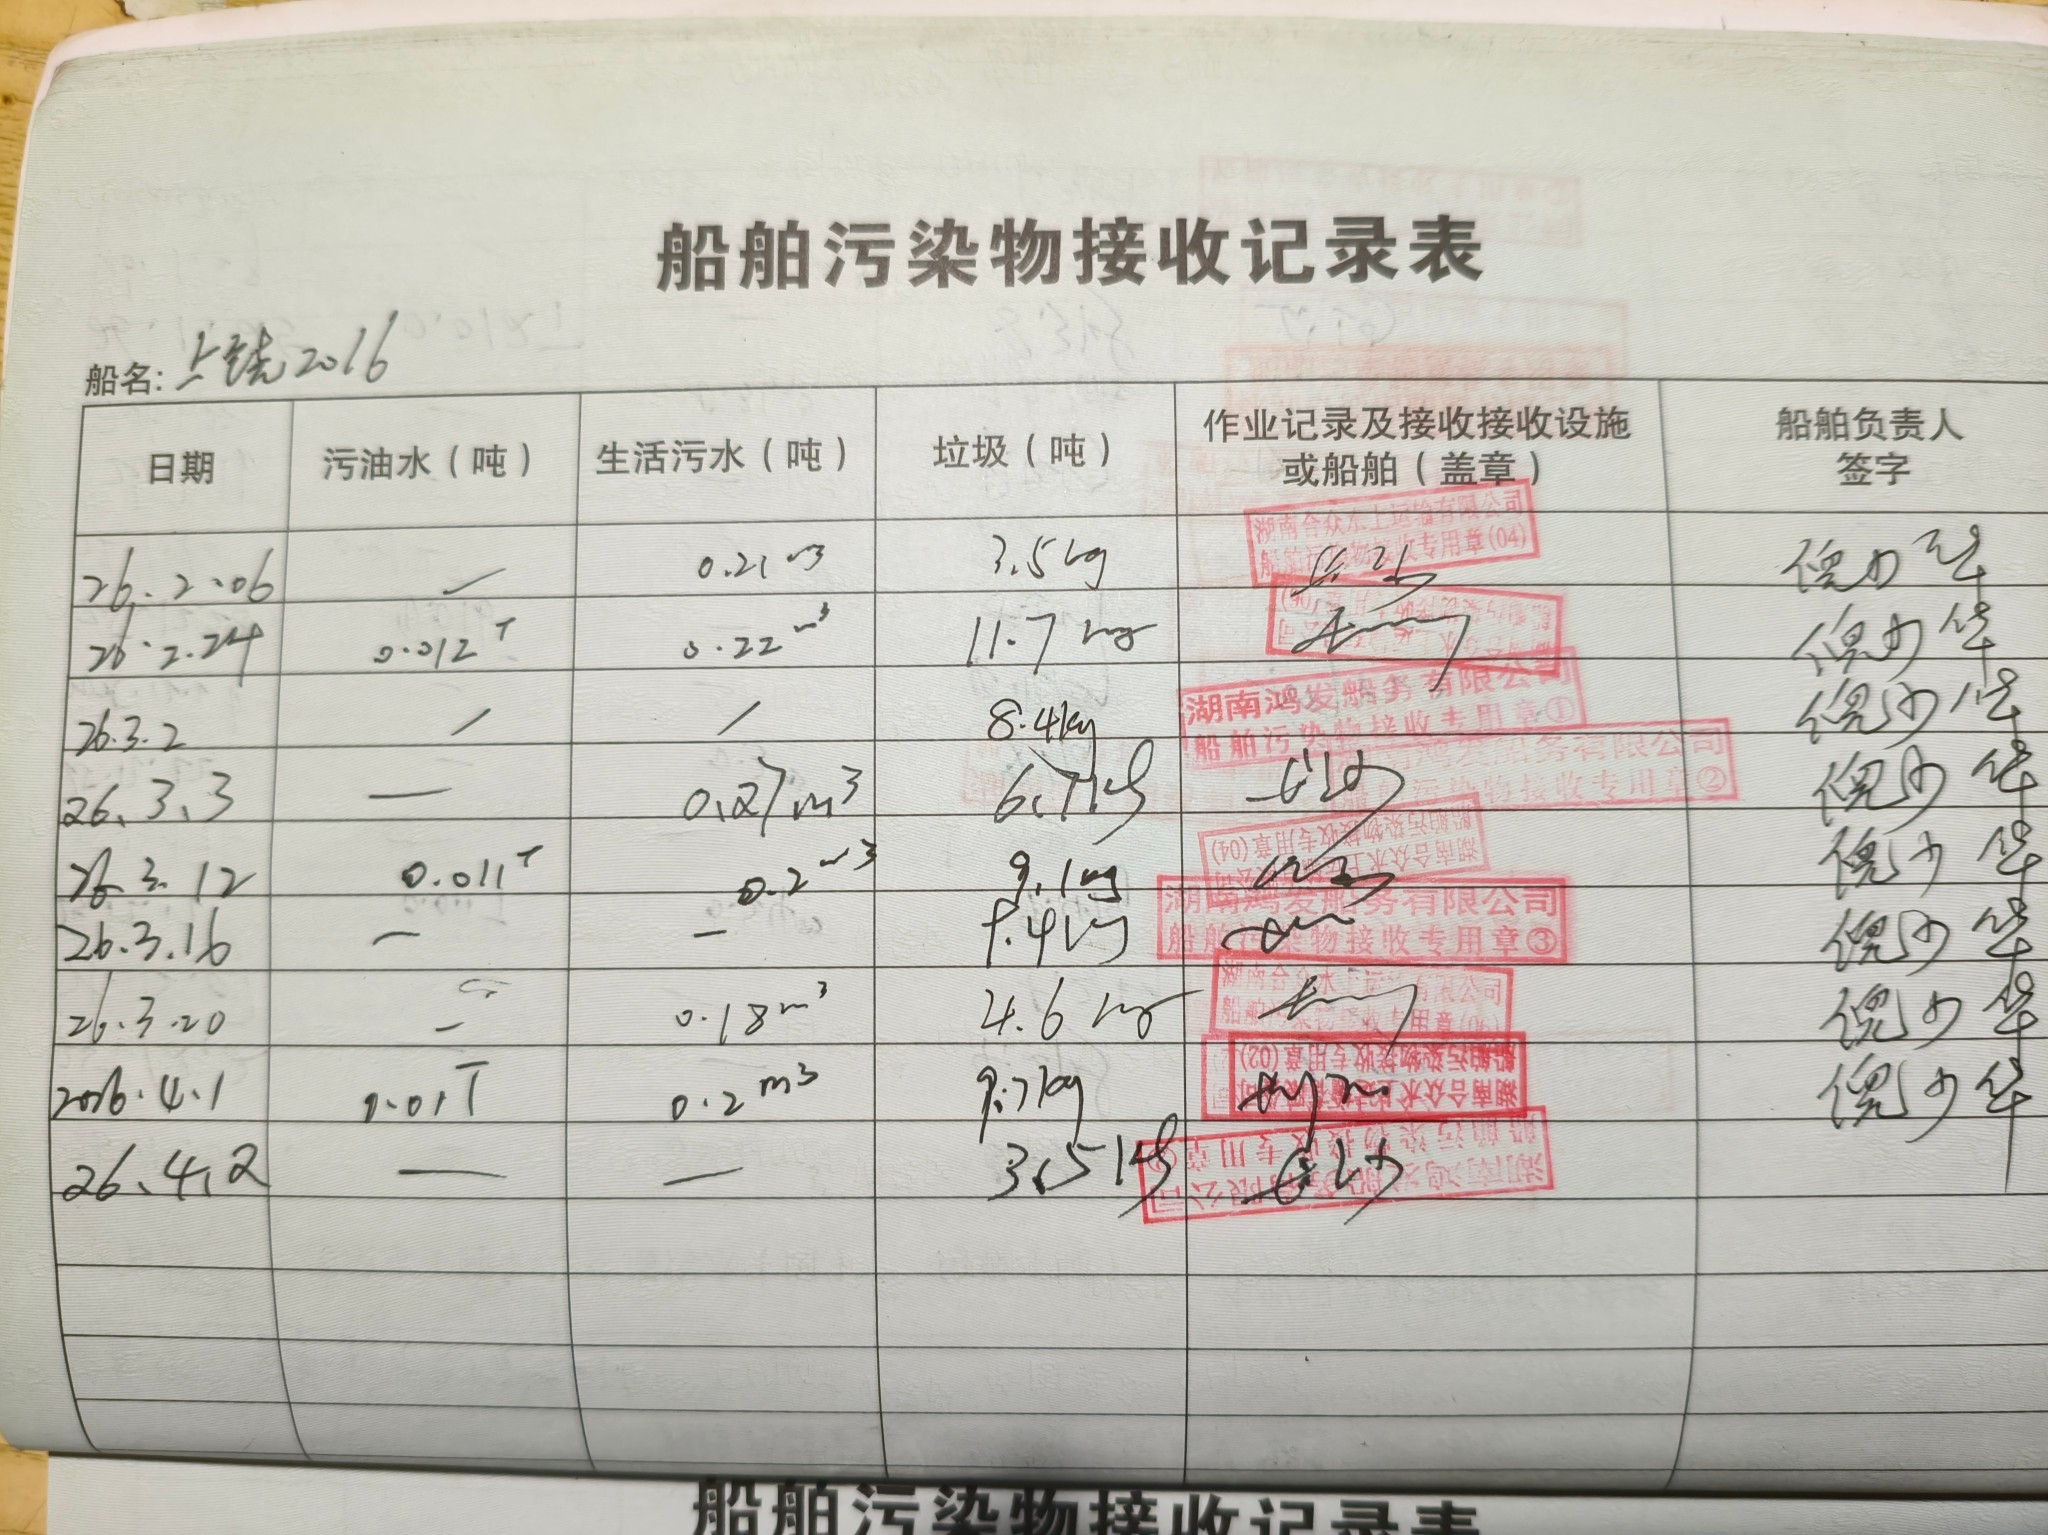 船舶污染物接收记录表
船名: 上 2016
日期 污油水（吨） 生活污水（吨） 垃圾（吨） 作业记录及接收接收设施或船舶（盖章） 船舶负责人签字
26.2.06 — 0.21 m³ 3.5kg 湖南合众水上运输有限公司 船舶污染物接收专用章(04) 倪少华
26.2.24 0.012T 0.22 m³ 11.7 kg 倪少华
26.3.2 / / 8.4kg 湖南鸿发船务有限公司 船舶污染物接收专用章① 倪少华
26.3.3 — 0.27m³ 6.7kg 湖南鸿发船务有限公司 船舶污染物接收专用章② 倪少华
26.3.12 0.011T 0.2 m³ 9.1kg 湖南合众水上运输有限公司 船舶污染物接收专用章(04) 倪少华
26.3.16 — — 9.4kg 湖南鸿发船务有限公司 船舶污染物接收专用章③ 倪少华
26.3.20 — 0.18m³ 4.6 kg 湖南合众水上运输有限公司 船舶污染物接收专用章 倪少华
2026.4.1 0.01T 0.2 m³ 9.7kg 湖南合众水上运输有限公司 船舶污染物接收专用章(02) 倪少华
26.4.2 — — 3.5kg 湖南鸿发船务有限公司 船舶污染物接收专用章
船舶污染物接收记录表